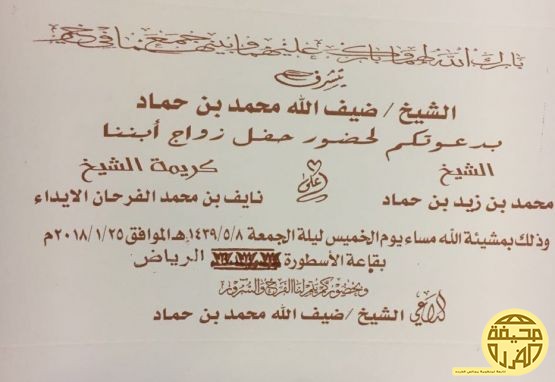 بارك الله لهما وبارك عليهما وجمع بينهما في خير
يتشرف
الشيخ / ضيف الله محمد بن حماد
بدعوتكم لحضور حفل زواج أبننا
الشيخ
كريمة الشيخ
محمد بن زيد بن حماد
على
نايف بن محمد الفرحان الايداء
وذلك بمشيئة الله مساء يوم الخميس ليلة الجمعة ١٤٣٩/٥/٨هـ الموافق ٢٠١٨/١/٢٥م
بقاعة الأسطورة الرياض
وبحضوركم يتم لنا الفرح والسرور
الداعي الشيخ / ضيف الله محمد بن حماد
صحيفة